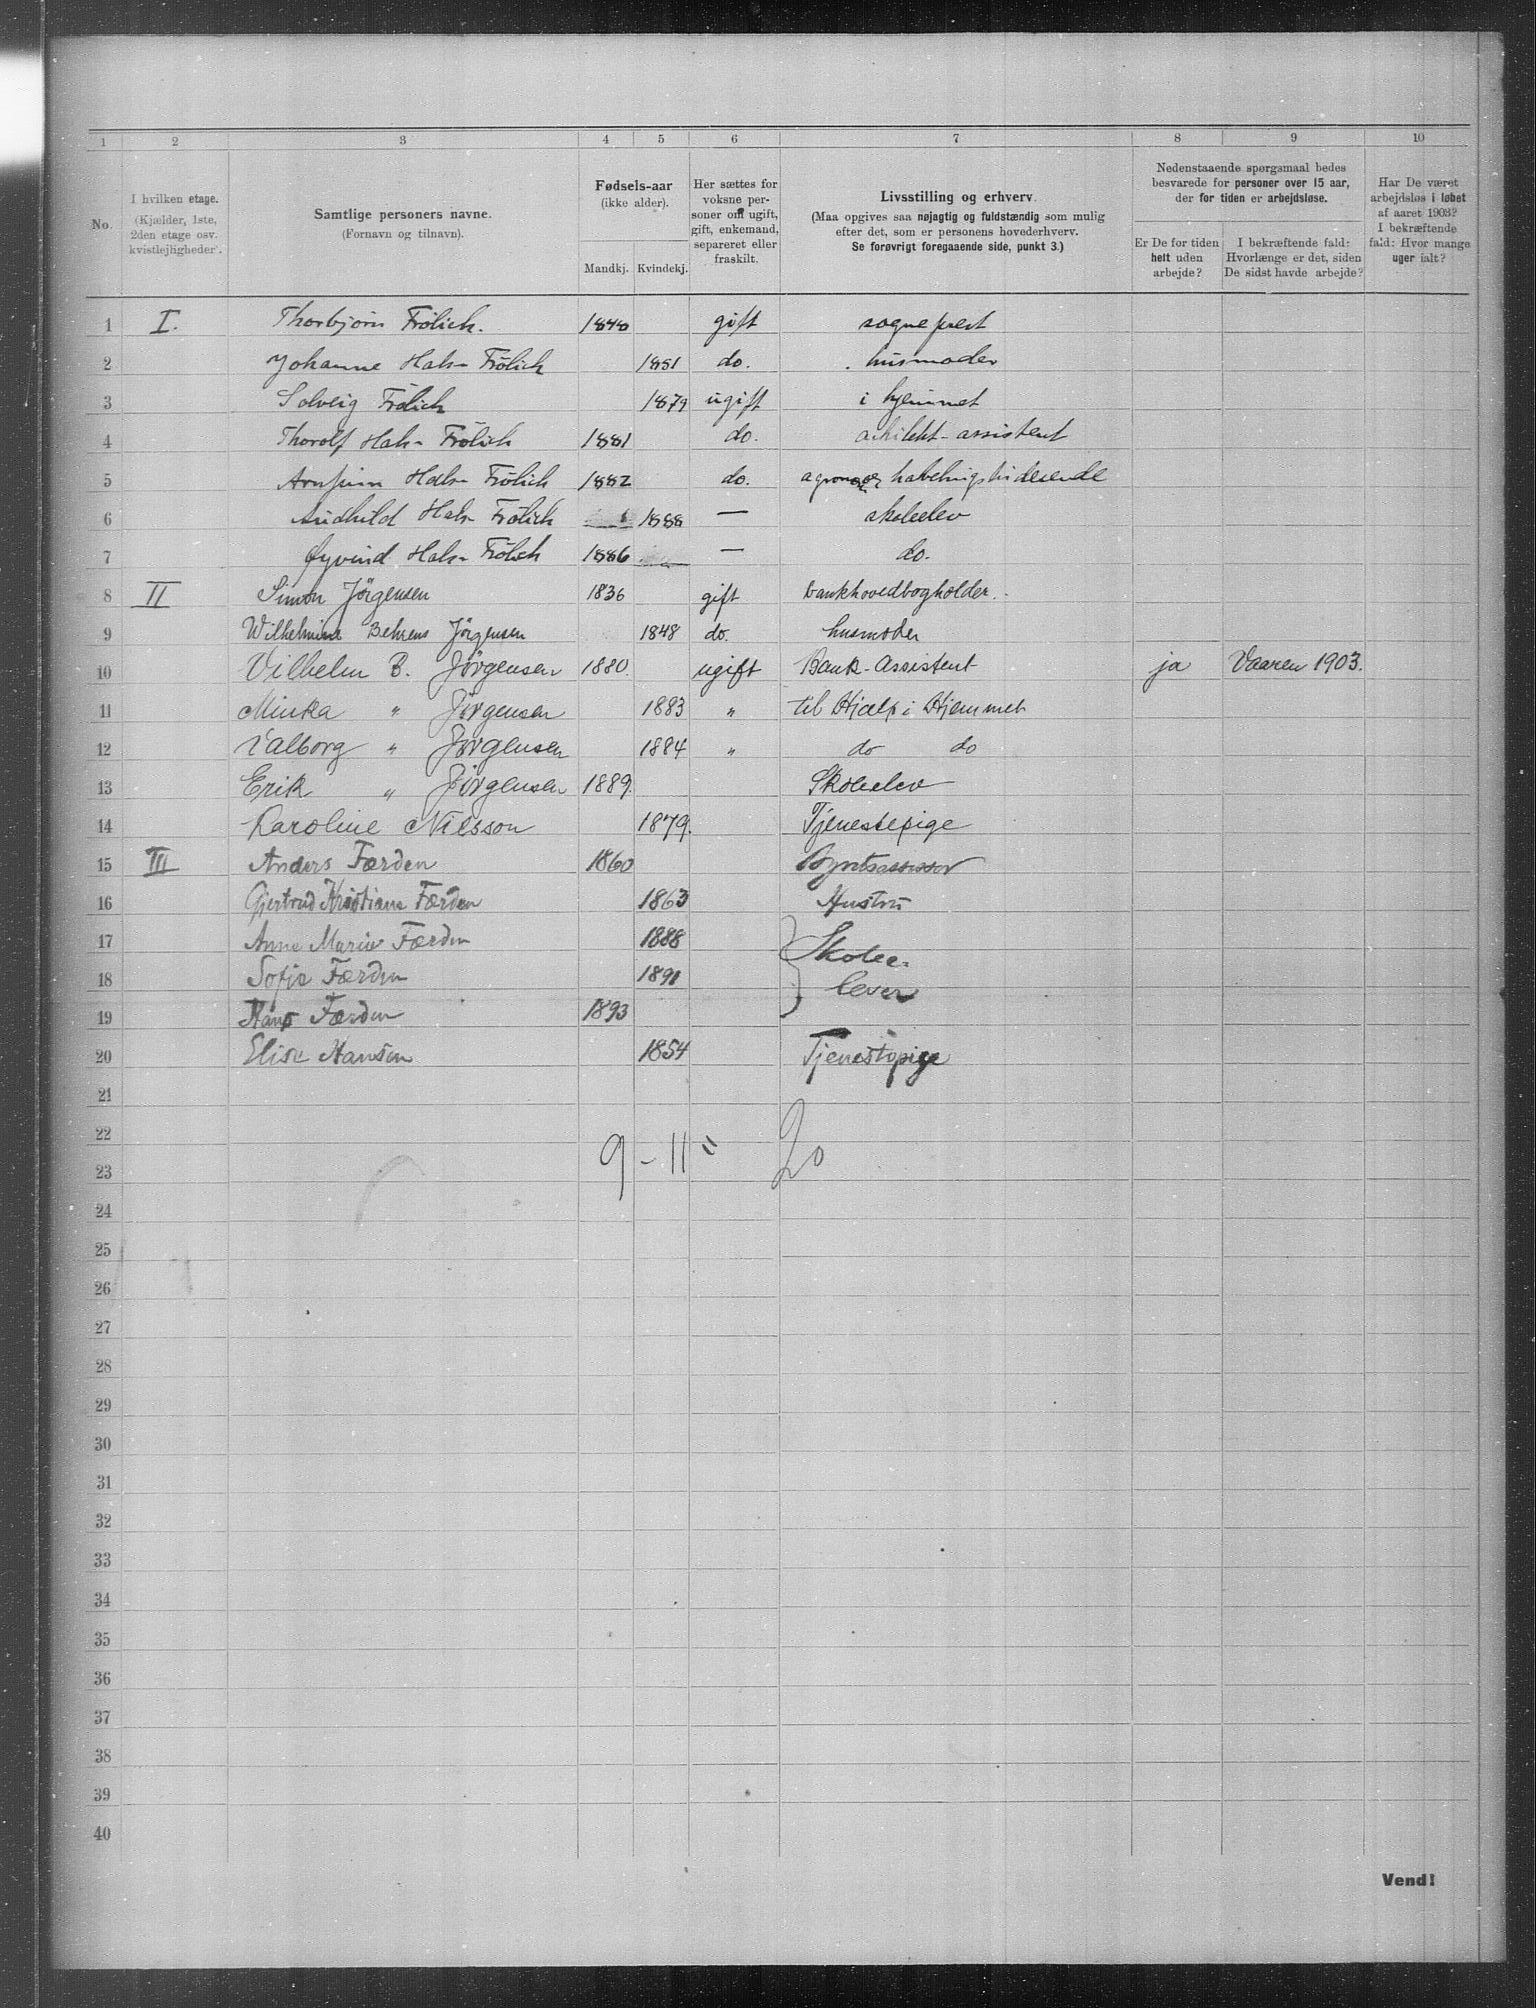 1 2 3 4 5 6 7 8 9 10
No.
I hvilken etage.
(Kjælder, 1ste,
2den etage osv.
kvistlejligheder).
Samtlige personers navne.
(Fornavn og tilnavn).
Fødsels-aar
(ikke alder).
Mandkj. Kvindekj.
Her sættes for
voksne per-
soner om ugift,
gift, enkemand,
separeret eller
fraskilt.
Livsstilling og erhverv.
(Maa opgives saa nøjagtig og fuldstændig som mulig
efter det, som er personens hovederhverv.
Se forøvrigt foregaaende side, punkt 3.)
Nedenstaaende spørgsmaal bedes
besvarede for personer over 15 aar,
der for tiden er arbejdsløse.
Er De for tiden
helt uden
arbejde?
I bekræftende fald:
Hvorlænge er det, siden
De sidst havde arbejde?
Har De været
arbejdsløs i løbet
af aaret 1903?
I bekræftende
fald: Hvor mange
uger ialt?
1 I. Thorbjörn Frölich. 1848 gift sogneprest
2 Johanne Hals- Frölich 1851 do. husmoder
3 Solveig Frölich 1879 ugift i hjemmet
4 Thorolf Hals- Frölich 1881 do. arkitekt-assistent
5 Arnfinn Hals- Frölich 1882 do. agronom
6 Audhild Hals- Frölich 1888 — skoleelev
7 Øyvind Hals- Frölich 1886 — do.
8 II Simon Jörgensen 1836 gift bankhovedbogholder.
9 Wilhelmine Behrens Jörgensen 1848 do. husmoder
10 Vilhelm B. Jörgensen 1880. ugift Bank-Assistent ja Vaaren 1903.
11 Minka " Jörgensen 1883 " til Hjælp i Hjemmet
12 Valborg " Jörgensen 1884 " do do
13 Erik " Jörgensen 1889. Skoleelev
14 Karoline Nilsson 1879. Tjenestepige
15 III Anders Færden 1860 Byretsassessor
16 Gjertrud Kristiane Færden 1863 Hustru
17 Anne Marie Færden 1888 Skolee-
18 Sofie Færden 1891 lever
19 Hans Færden 1893
20 Elise Hansen 1854 Tjenestepige
21
22
9 - 11 " 20
23
24
25
26
27
28
29
30
31
32
33
34
35
36
37
38
39
40
Vend!